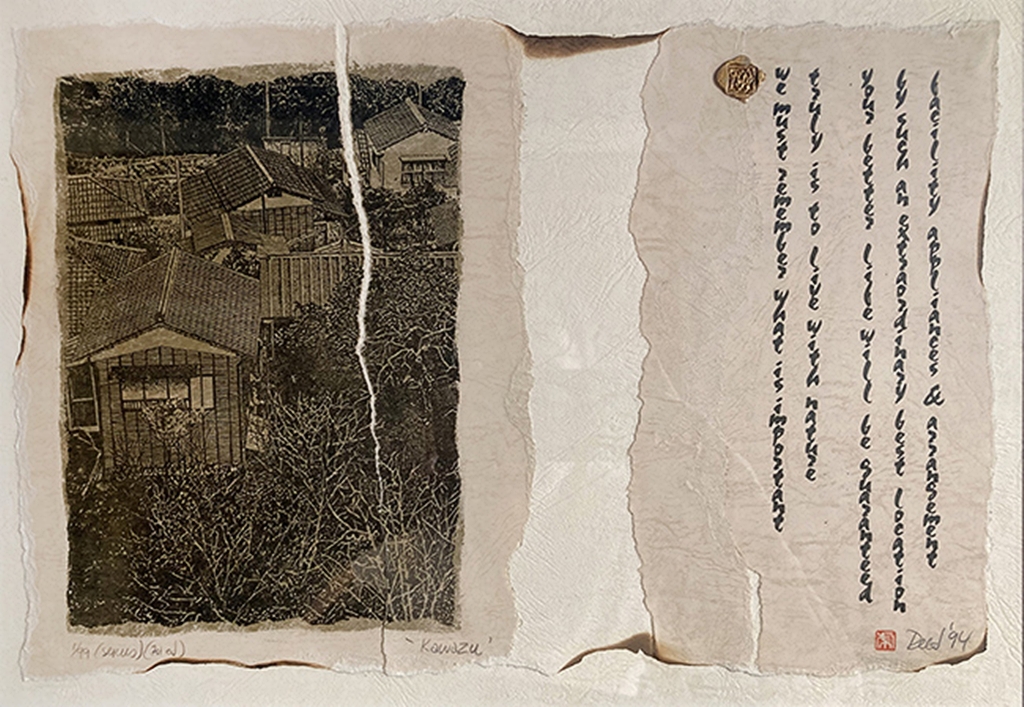 facility appliances & arrangement
by such an extraordinary best location
your better life will be guaranteed
truly is to live with nature
we must remember what is important
1/99 (series)
'Kawazu'
'94